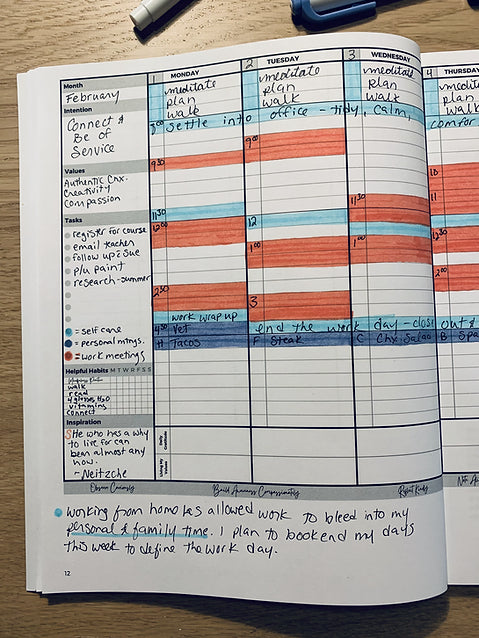 Month
February
Intention
Connect &
Be of
Service
Values
Authentic Cnx.
Creativity
Compassion
Tasks
register for course
email teacher
follow up: Sue
p/u paint
research-summer
= self care
= personal mtngs.
= work meetings
Helpful Habits M T W R F S S
walk
read
vitamins
connect
Inspiration
He who has a why
to live for can
bear almost any
how.
- Neitzche
1 MONDAY
meditate
plan
walk
9:30
11:30
12:00
2:30
work wrap up
4:30 Vet
H Tacos
2 TUESDAY
meditate
plan
walk
9:00
12
1:00
3
F Steak
3 WEDNESDAY
meditate
plan
walk
11:30
1:00
C Chx Salad
4 THURSDAY
plan
walk
10
11
12:30
2:00
B Spa
7:00 settle into office - tidy, calm, comfor
end the work day - close out &
Daily
Gratitude
Living My
Values
Observe Curiously
Build Awareness Compassionately
Repeat Kindly
working from home has allowed work to bleed into my
personal & family time. I plan to bookend my days
this week to define the work day.
12